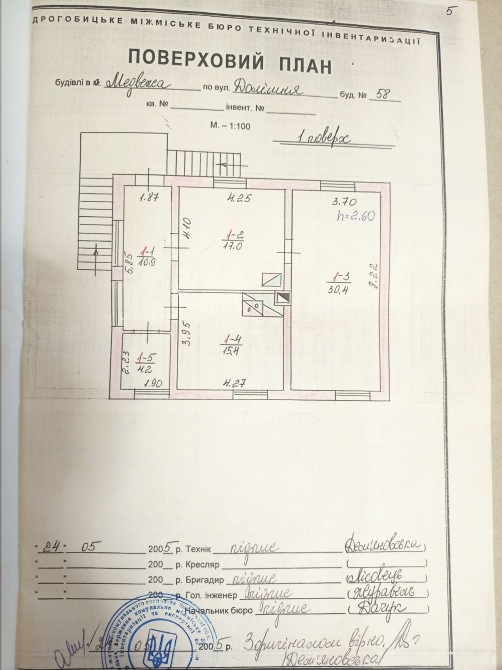 5
ДРОГОБИЦЬКЕ МІЖМІСЬКЕ БЮРО ТЕХНІЧНОЇ ІНВЕНТАРИЗАЦІЇ
ПОВЕРХОВИЙ ПЛАН
будівлі в с. Медвежа по вул. Долішня буд. № 58
кв. № інвент. №
М. – 1:100
1 поверх
1.87 4.25 3.70
h=2.60
4.10
1-1
10.9
1-2
17.0
5.85
1-3
30,4
8.22
3.95
1-4
15.4
2.23
1-5
4.2
1.90 4.27
" 24 " 05 2005 р. Технік підпис (Дем'яновська)
" " 200 р. Кресляр ( )
" " 200 р. Бригадир підпис (Лісовець)
" " 200 р. Гол. інженер підпис (Журавель)
Начальник бюро підпис ( )
05 2005 р. З оригіналом вірно
Дем'яновська